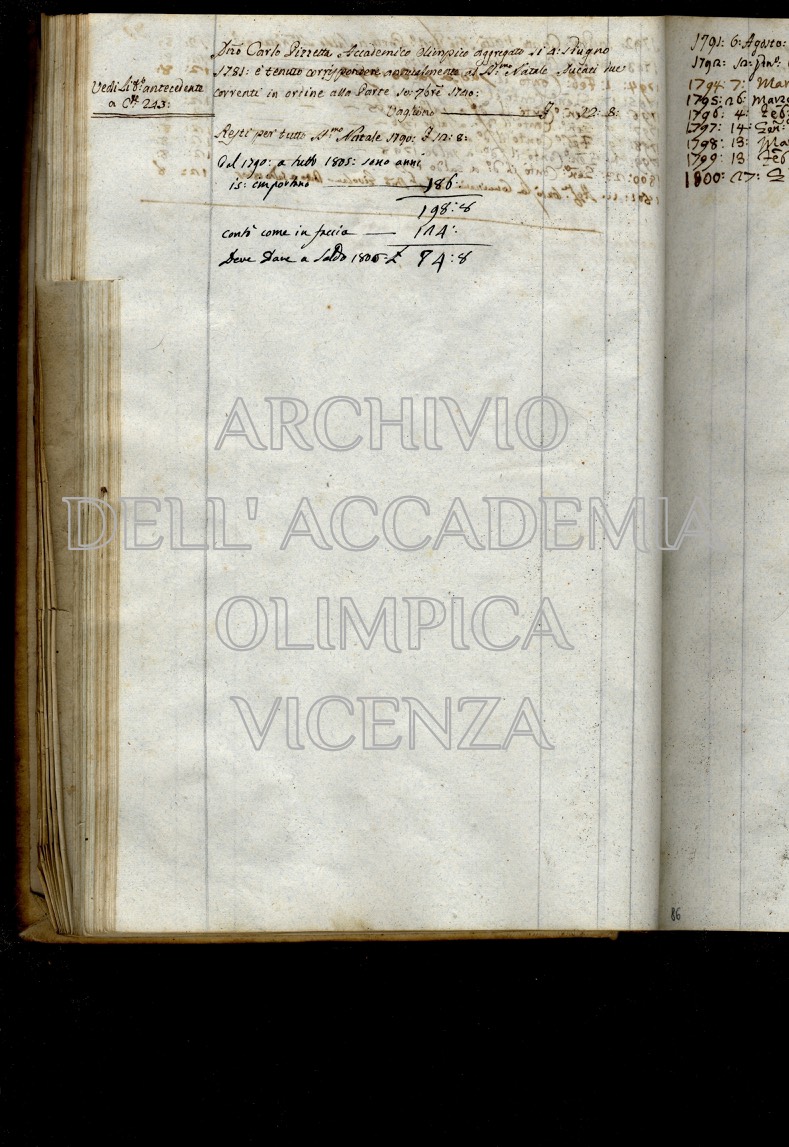 Vedi Li8:º antecedente
a C.te 243:
Carlo Pizzetta Accademico Olimpico aggregato li 4: Giugno
1781: è tenuto corrispondere annualmente al S:mo Natale Ducati due
correnti in ordine alla Parte 10: 7bre 1740:
Vagliono 12: 8:
Resti per tutto S:mo Natale 1790: 12: 8:
Dal 1790: a tutto 1805: sono anni
15: importano 186:
198:8
contò come in faccia 114:
Deve Dare a Saldo 84:8
1791: 6: Agosto:
1792: 10:
1794 7: Mar
1795: 26 Marzo
1796 4: Feb
1797: 14: Gen:
1798: 13: Ma
1799: 13 Feb
1800: 27: G
86
ARCHIVIO
DELL' ACCADEMIA
OLIMPICA
VICENZA